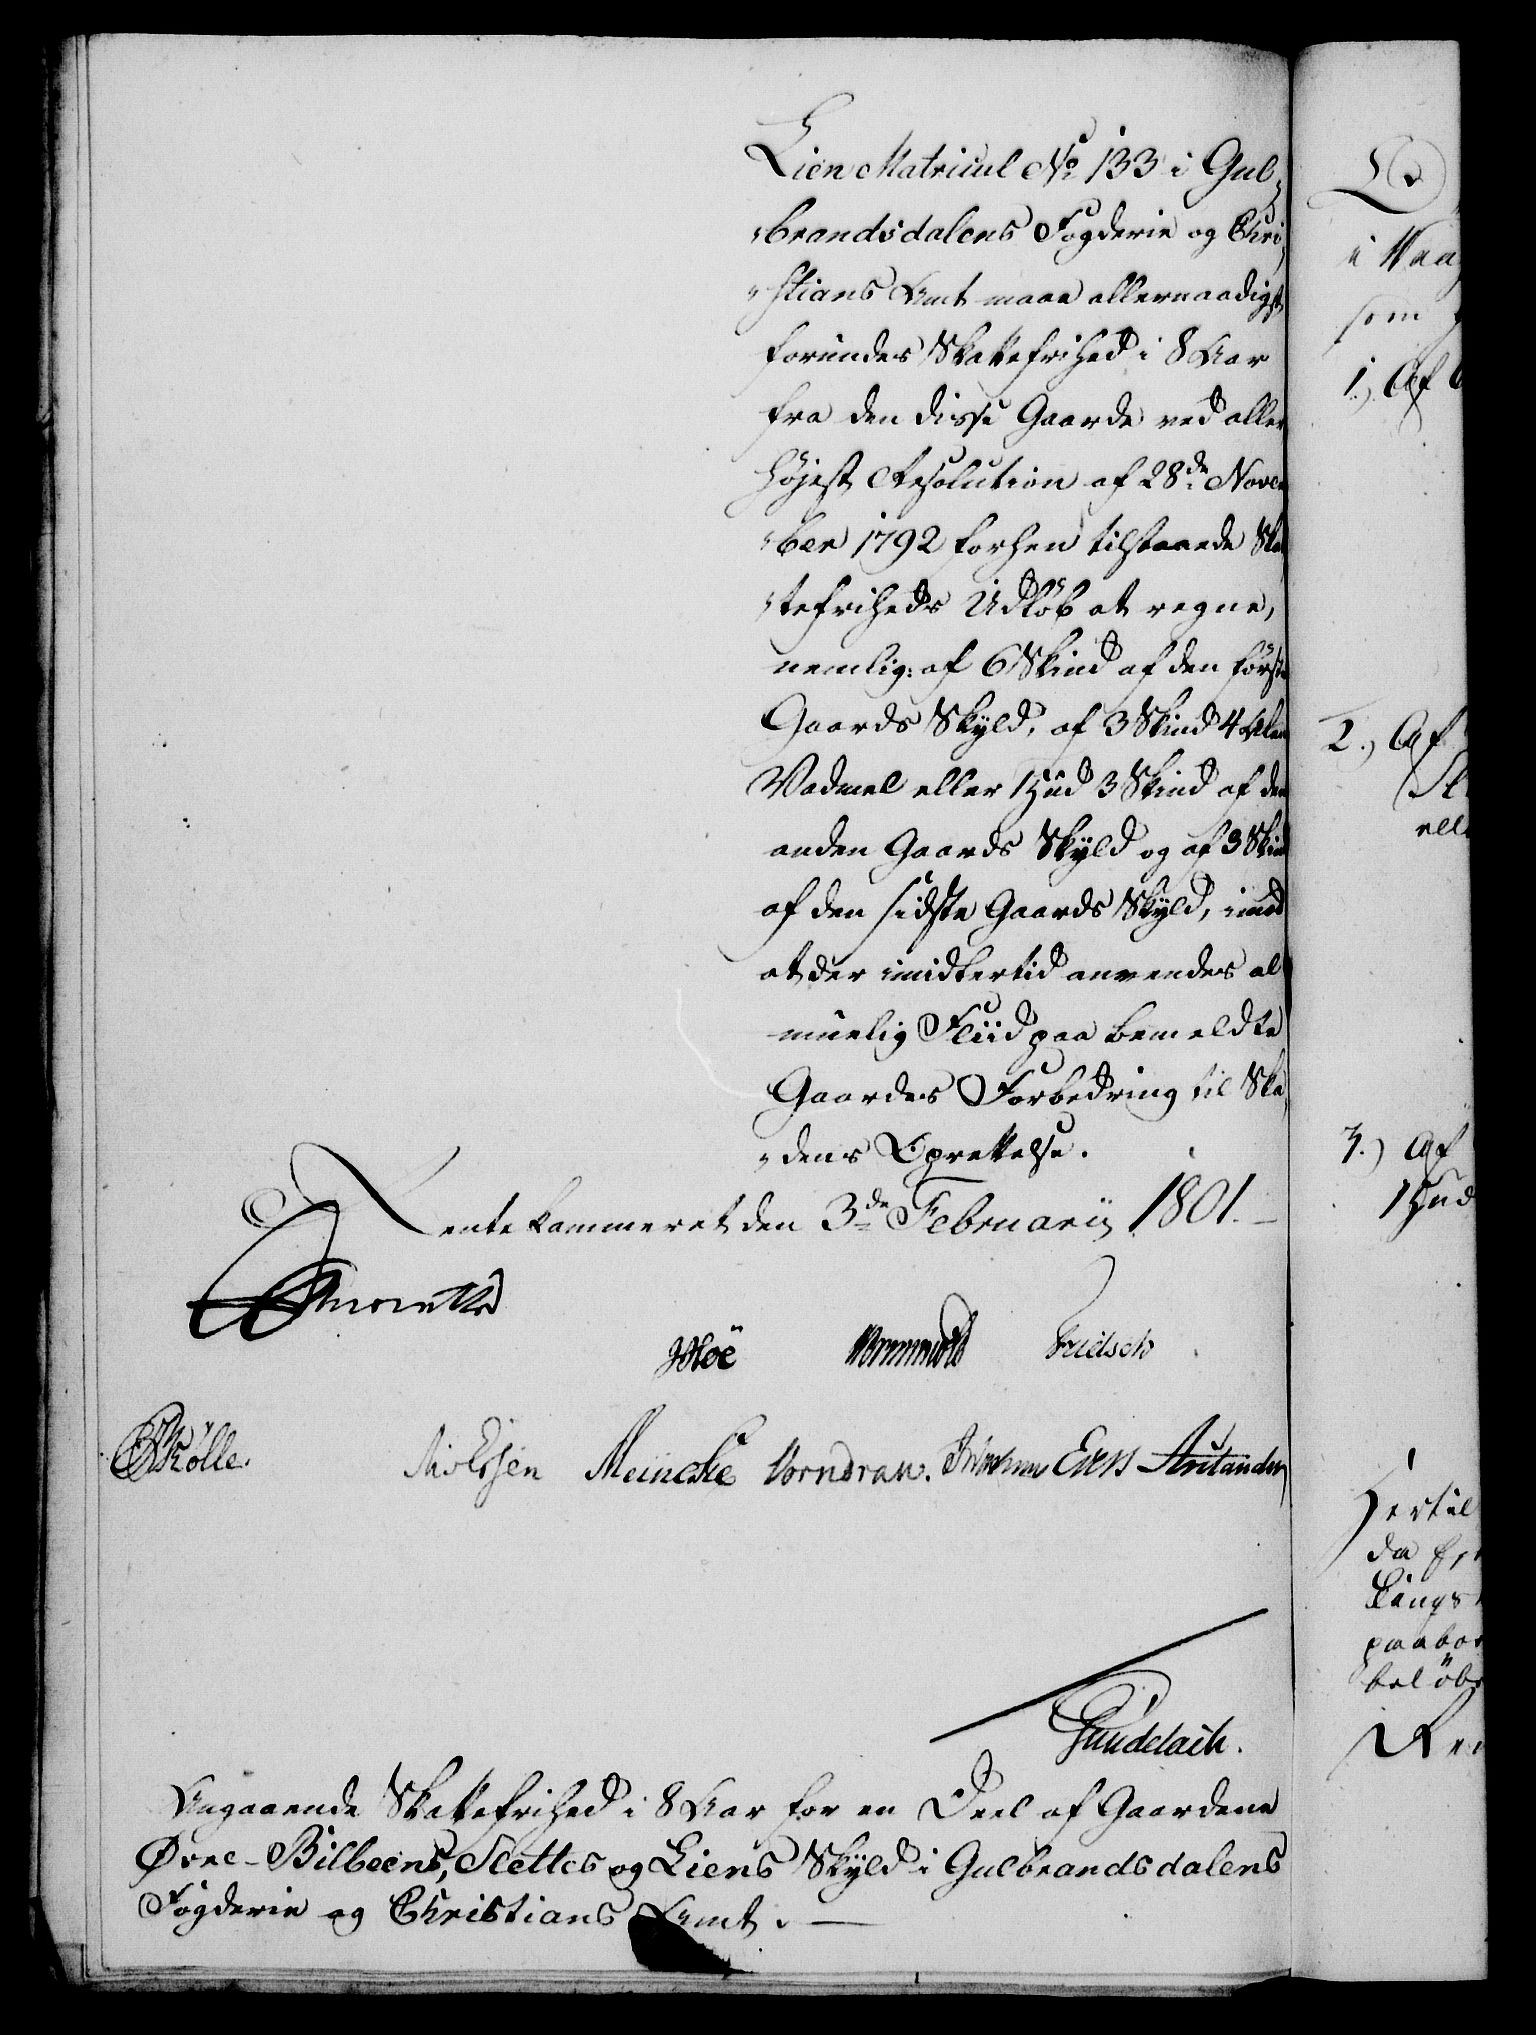 Lien Matricul No 133 i Gul-
„brandsdalens Fogderie og Chri-
„stians Amt maae allernaadigst
forundes Skattefrihed i 8 Aar
fra den disse Gaarde ved aller
højest Resolution af 28de Novem
„ber 1792 forhen tilstaaede Skat
„tefriheds Udløb at regne,
nemlig: af 6 Skind af den første
Gaards Skyld, af 3 Skind 4 Alen
Vadmel eller 1 Hud 3 Skind af den
anden Gaards Skyld og af 3 Skind
af den sidste Gaards Skyld, imod
at der imidlertid anvendes al
muelig Fliid paa bemeldte
Gaardes Forbedring til Ska-
„dens Oprettelse.
Rentekammeret den 3de Februarij 1801.
Wormskiold Fridsch
Skølle. Meincke Vorndran. Evers
Gundelach.
Angaaende Skattefrihed i 8 Aar for en Deel af Gaardene
Øvre-Bilbeens, Slettes og Liens Skyld i Gulbrandsdalens
Fogderie og Christians Amt.
i Vaag
som
1.) Af
2.) Af
ell
3.) Af
1 Hud
Hertil
da
Kongs
paabo
beløb
Ren